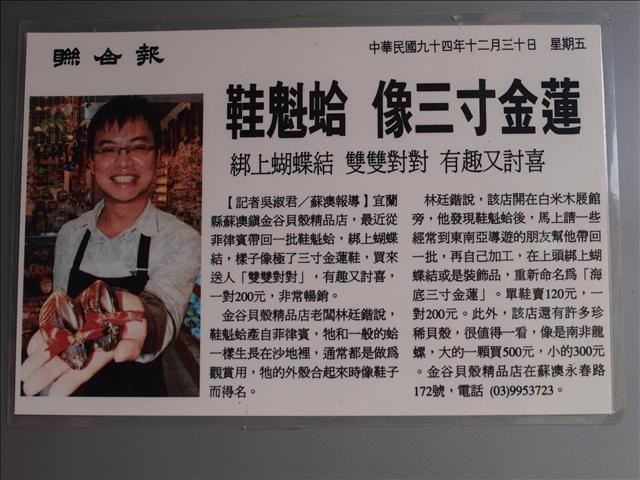 聯合報
中華民國九十四年十二月三十日 星期五
鞋魁蛤 像三寸金蓮
綁上蝴蝶結 雙雙對對 有趣又討喜
【記者吳淑君／蘇澳報導】宜蘭
縣蘇澳鎮金谷貝殼精品店，最近從
菲律賓帶回一批鞋魁蛤，綁上蝴蝶
結，樣子像極了三寸金蓮鞋，買來
送人「雙雙對對」，有趣又討喜，
一對200元，非常暢銷。
金谷貝殼精品店老闆林廷鍇說，
鞋魁蛤產自菲律賓，牠和一般的蛤
一樣生長在沙地裡，通常都是做為
觀賞用，牠的外殼合起來時像鞋子
而得名。
林廷鍇說，該店開在白米木展館
旁，他發現鞋魁蛤後，馬上請一些
經常到東南亞導遊的朋友幫他帶回
一批，再自己加工，在上頭綁上蝴
蝶結或是裝飾品，重新命名為「海
底三寸金蓮」。單鞋賣120元，一
對200元。此外，該店還有許多珍
稀貝殼，很值得一看，像是南非龍
螺，大的一顆賣500元，小的300元
。金谷貝殼精品店在蘇澳永春路
172號，電話 (03)9953723。